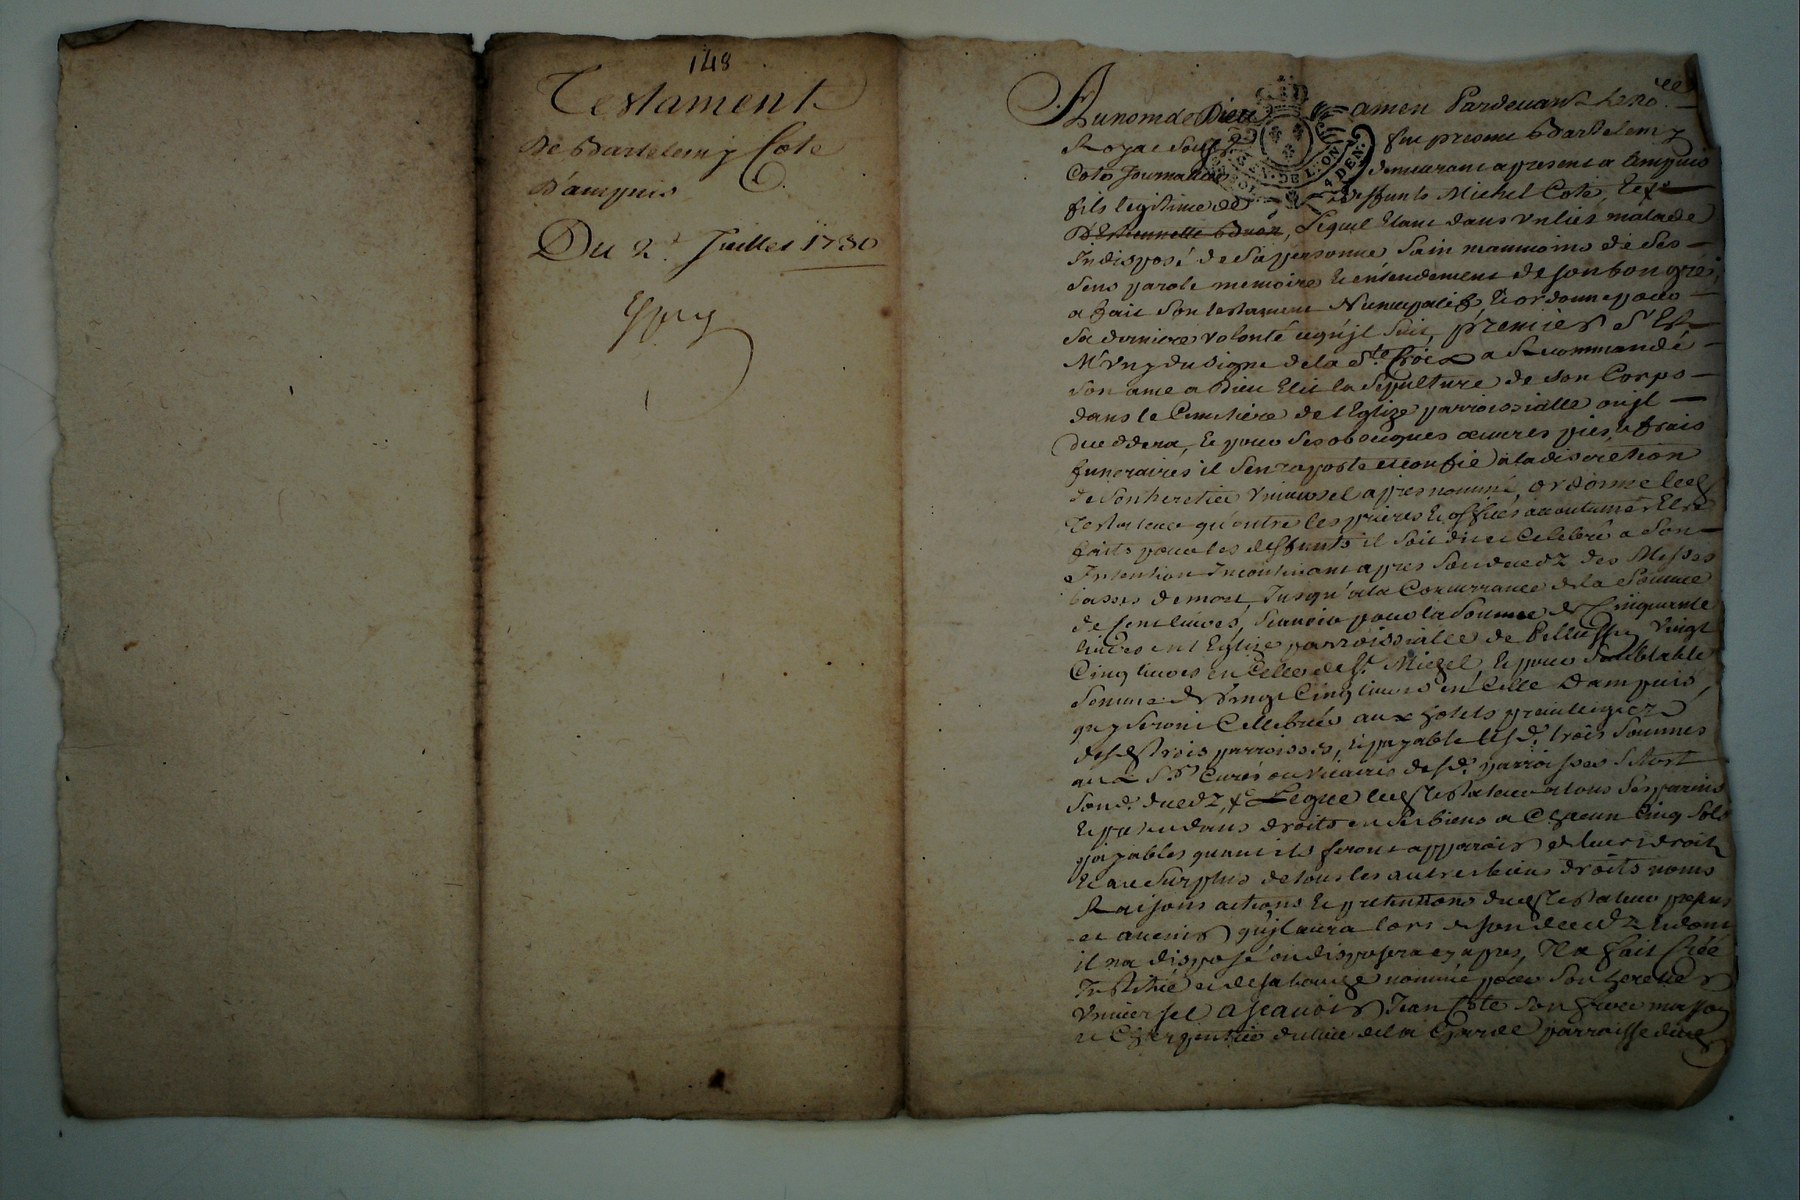 148
Testament
De Bartelemy Cote
D'ampuis
Du 2e. Juillet 1730
Au nom de Dieu amen Pardevant le no.re
Royal soussigné fut present Bartelemy
Cote Journallier demeurant a present a Ampuis
fils legitime de deffunts Michel Cote, et
D'Etiennette, lequel etant dans un lict malade
Indisposé de sa personne sain neanmoins de ses
sens parole memoire et entendement de son bon gré
a fait son testament Nuncupatif et ordonne pour
Sa derniere volonté equ'jl suit, premier S'Est
Muny du signe de la Ste. Croix a Recommandé
son ame a Dieu Elit la sepulture de son Corps
dans le Cimetiere de l'Eglize parroissialle ou jl
deceddera, et pour ses obseques œuvres pies, et frais
funeraires il s'en raporte et confie a la discretion
de son heretier Universel apres nommé, ordonne led.
Testateur qu'outre les prieres et offices accoutumés Etre
faits pour les deffunts il soit dit et Celebré a son
Intention Incontinant apres son decedz des Messes
basses de mort, Jusqu'a la Concurrance de la Somme
de Cent livres, Scavoir pour la Somme de Cinquante
livres en l'Eglize parroissialle de Vingt
Cinq livres en Celle de St. Michel, et pour Semblable
Somme de Vingt Cinq livres en Celle D'ampuis,
qui seront Cellebrés aux hotels privilegiez
desd. trois parroisses, et payable lesd. trois Sommes
aux Srs. Curés ou vicaires desd. parroisses
Sond. decedz, Legue led. testateur a tous ses parens
et pretendans droits en ses biens a Chacun Cinq Sols
payables quant ils feront apparoir de leurs droits
et au Surplus de tous les autres biens droits noms
Raisons actions et pretentions dud. testateur presens
et avenir qu'jl aura lors de son decedz et dont
il n'a disposé ou disposera cy apres, Il a fait Créé
Institué et de sa bouche nommé pour son heretier
Universel a Scavoir Jean Cote son frere masson
et Chargentier du lieu de la Garde parroisse dud.